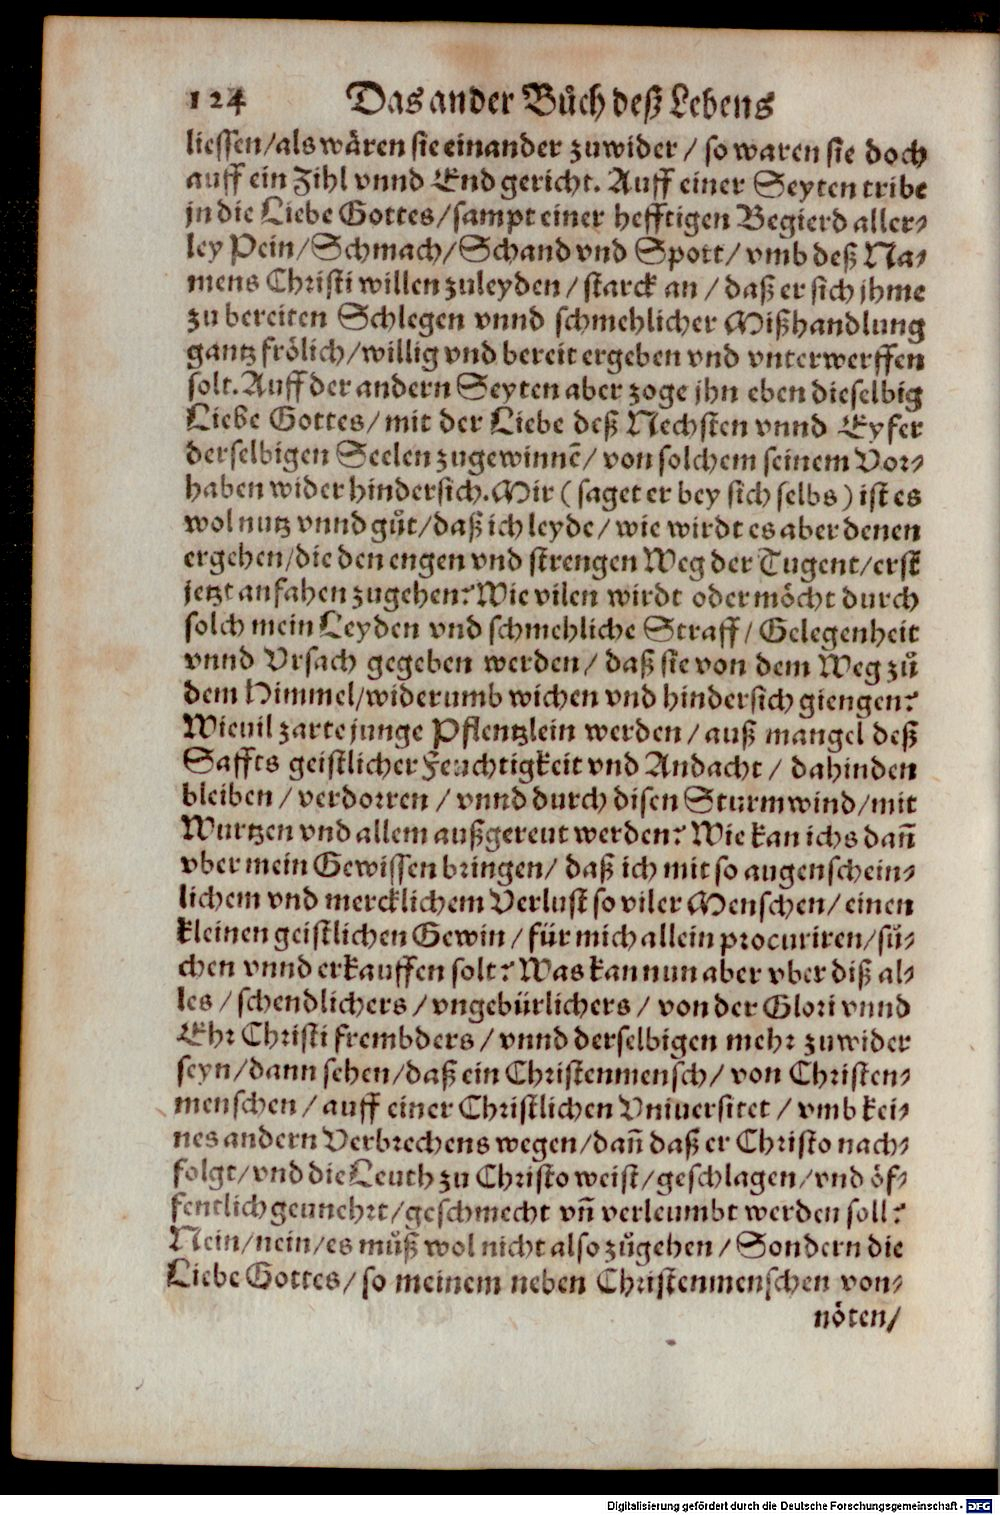 124 Das ander Bůch deß Lebens
liessen/als wären sie einander zuwider / so waren sie doch
auff ein Zihl vnnd End gericht. Auff einer Seyten tribe
jn die Liebe Gottes/sampt einer hefftigen Begierd aller-
ley Pein/Schmach/Schand vnd Spott/ vmb deß Na-
mens Christi willen zuleyden / starck an / daß er sich jhme
zu bereiten Schlegen vnnd schmehlicher Mißhandlung
gantz frölich/willig vnd bereit ergeben vnd vnterwerffen
solt. Auff der andern Seyten aber zoge jhn eben dieselbig
Liebe Gottes/ mit der Liebe deß Nechsten vnnd Eyfer
derselbigen Seelen zugewinnē/ von solchem seinem Vor-
haben wider hindersich. Mir ( saget er bey sich selbs ) ist es
wol nutz vnnd gůt/daß ich leyde/ wie wirdt es aber denen
ergehen/die den engen vnd strengen Weg der Tugent/erst
jetzt anfahen zugehen? Wie vilen wirdt oder möcht durch
solch mein Leyden vnd schmehliche Straff/ Gelegenheit
vnnd Vrsach gegeben werden/ daß sie von dem Weg zů
dem Himmel/widerumb wichen vnd hindersich giengen?
Wieuil zarte junge Pflentzlein werden / auß mangel deß
Saffts geistlicher Feuchtigkeit vnd Andacht / dahinden
bleiben / verdorren / vnnd durch disen Sturmwind/mit
Wurtzen vnd allem außgereut werden? Wie kan ichs dañ
vber mein Gewissen bringen/ daß ich mit so augenschein-
lichem vnd mercklichem Verlust so viler Menschen/ einen
kleinen geistlichen Gewin / für mich allein procuriren/sů-
chen vnnd erkauffen solt? Was kan nun aber vber diß al-
les / schendlichers / vngebürlichers / von der Glori vnnd
Ehr Christi frembders / vnnd derselbigen mehr zuwider
seyn/dann sehen/daß ein Christenmensch/ von Christen-
menschen / auff einer Christlichen Vniuersitet / vmb kei-
nes andern Verbrechens wegen/dañ daß er Christo nach-
folgt/vnd die Leuth zu Christo weist/geschlagen/vnd öf-
fentlich geunehrt/geschmecht vñ verleumbt werden soll?
Nein/nein/es můß wol nicht also zůgehen / Sondern die
Liebe Gottes/ so meinem neben Christenmenschen von-
nöten/
Digitalisierung gefördert durch die Deutsche Forschungsgemeinschaft - DFG